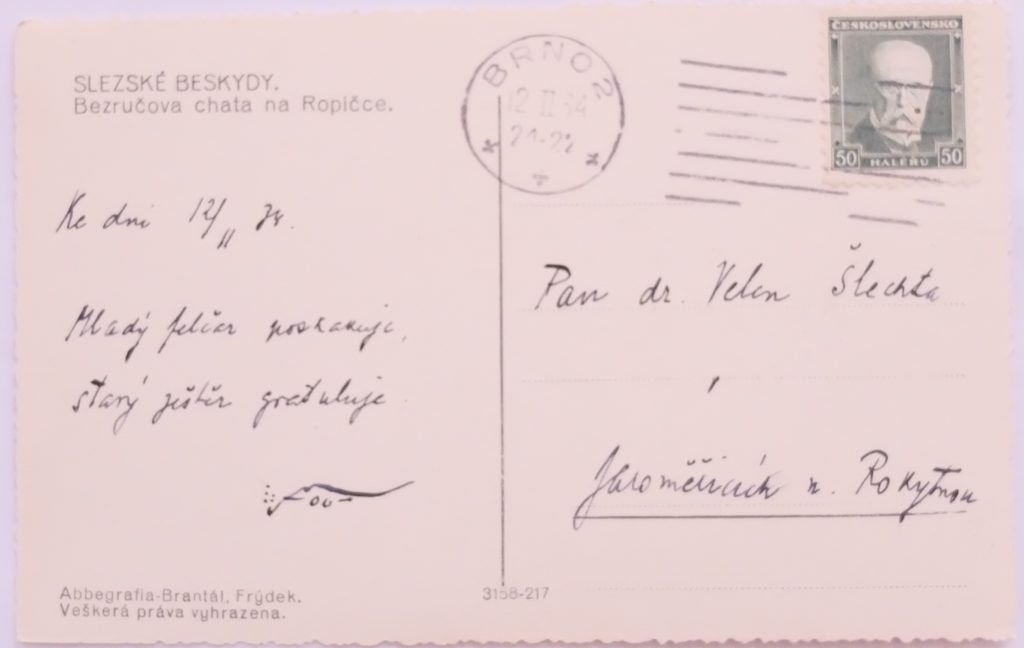 SLEZSKÉ BESKYDY.
Bezručova chata na Ropičce.
Ke dni 12/II 34.
Mladý felčar poskakuje,
starý ještěr gratuluje
Abbegrafia-Brantál, Frýdek.
Veškerá práva vyhrazena.
3158-217
BRNO 2
12 II 34
21-22
ČESKOSLOVENSKO
50 HALÉŘŮ 50
Pan dr. Velen Šlechta
,
Jaroměřicích n. Rokytnou